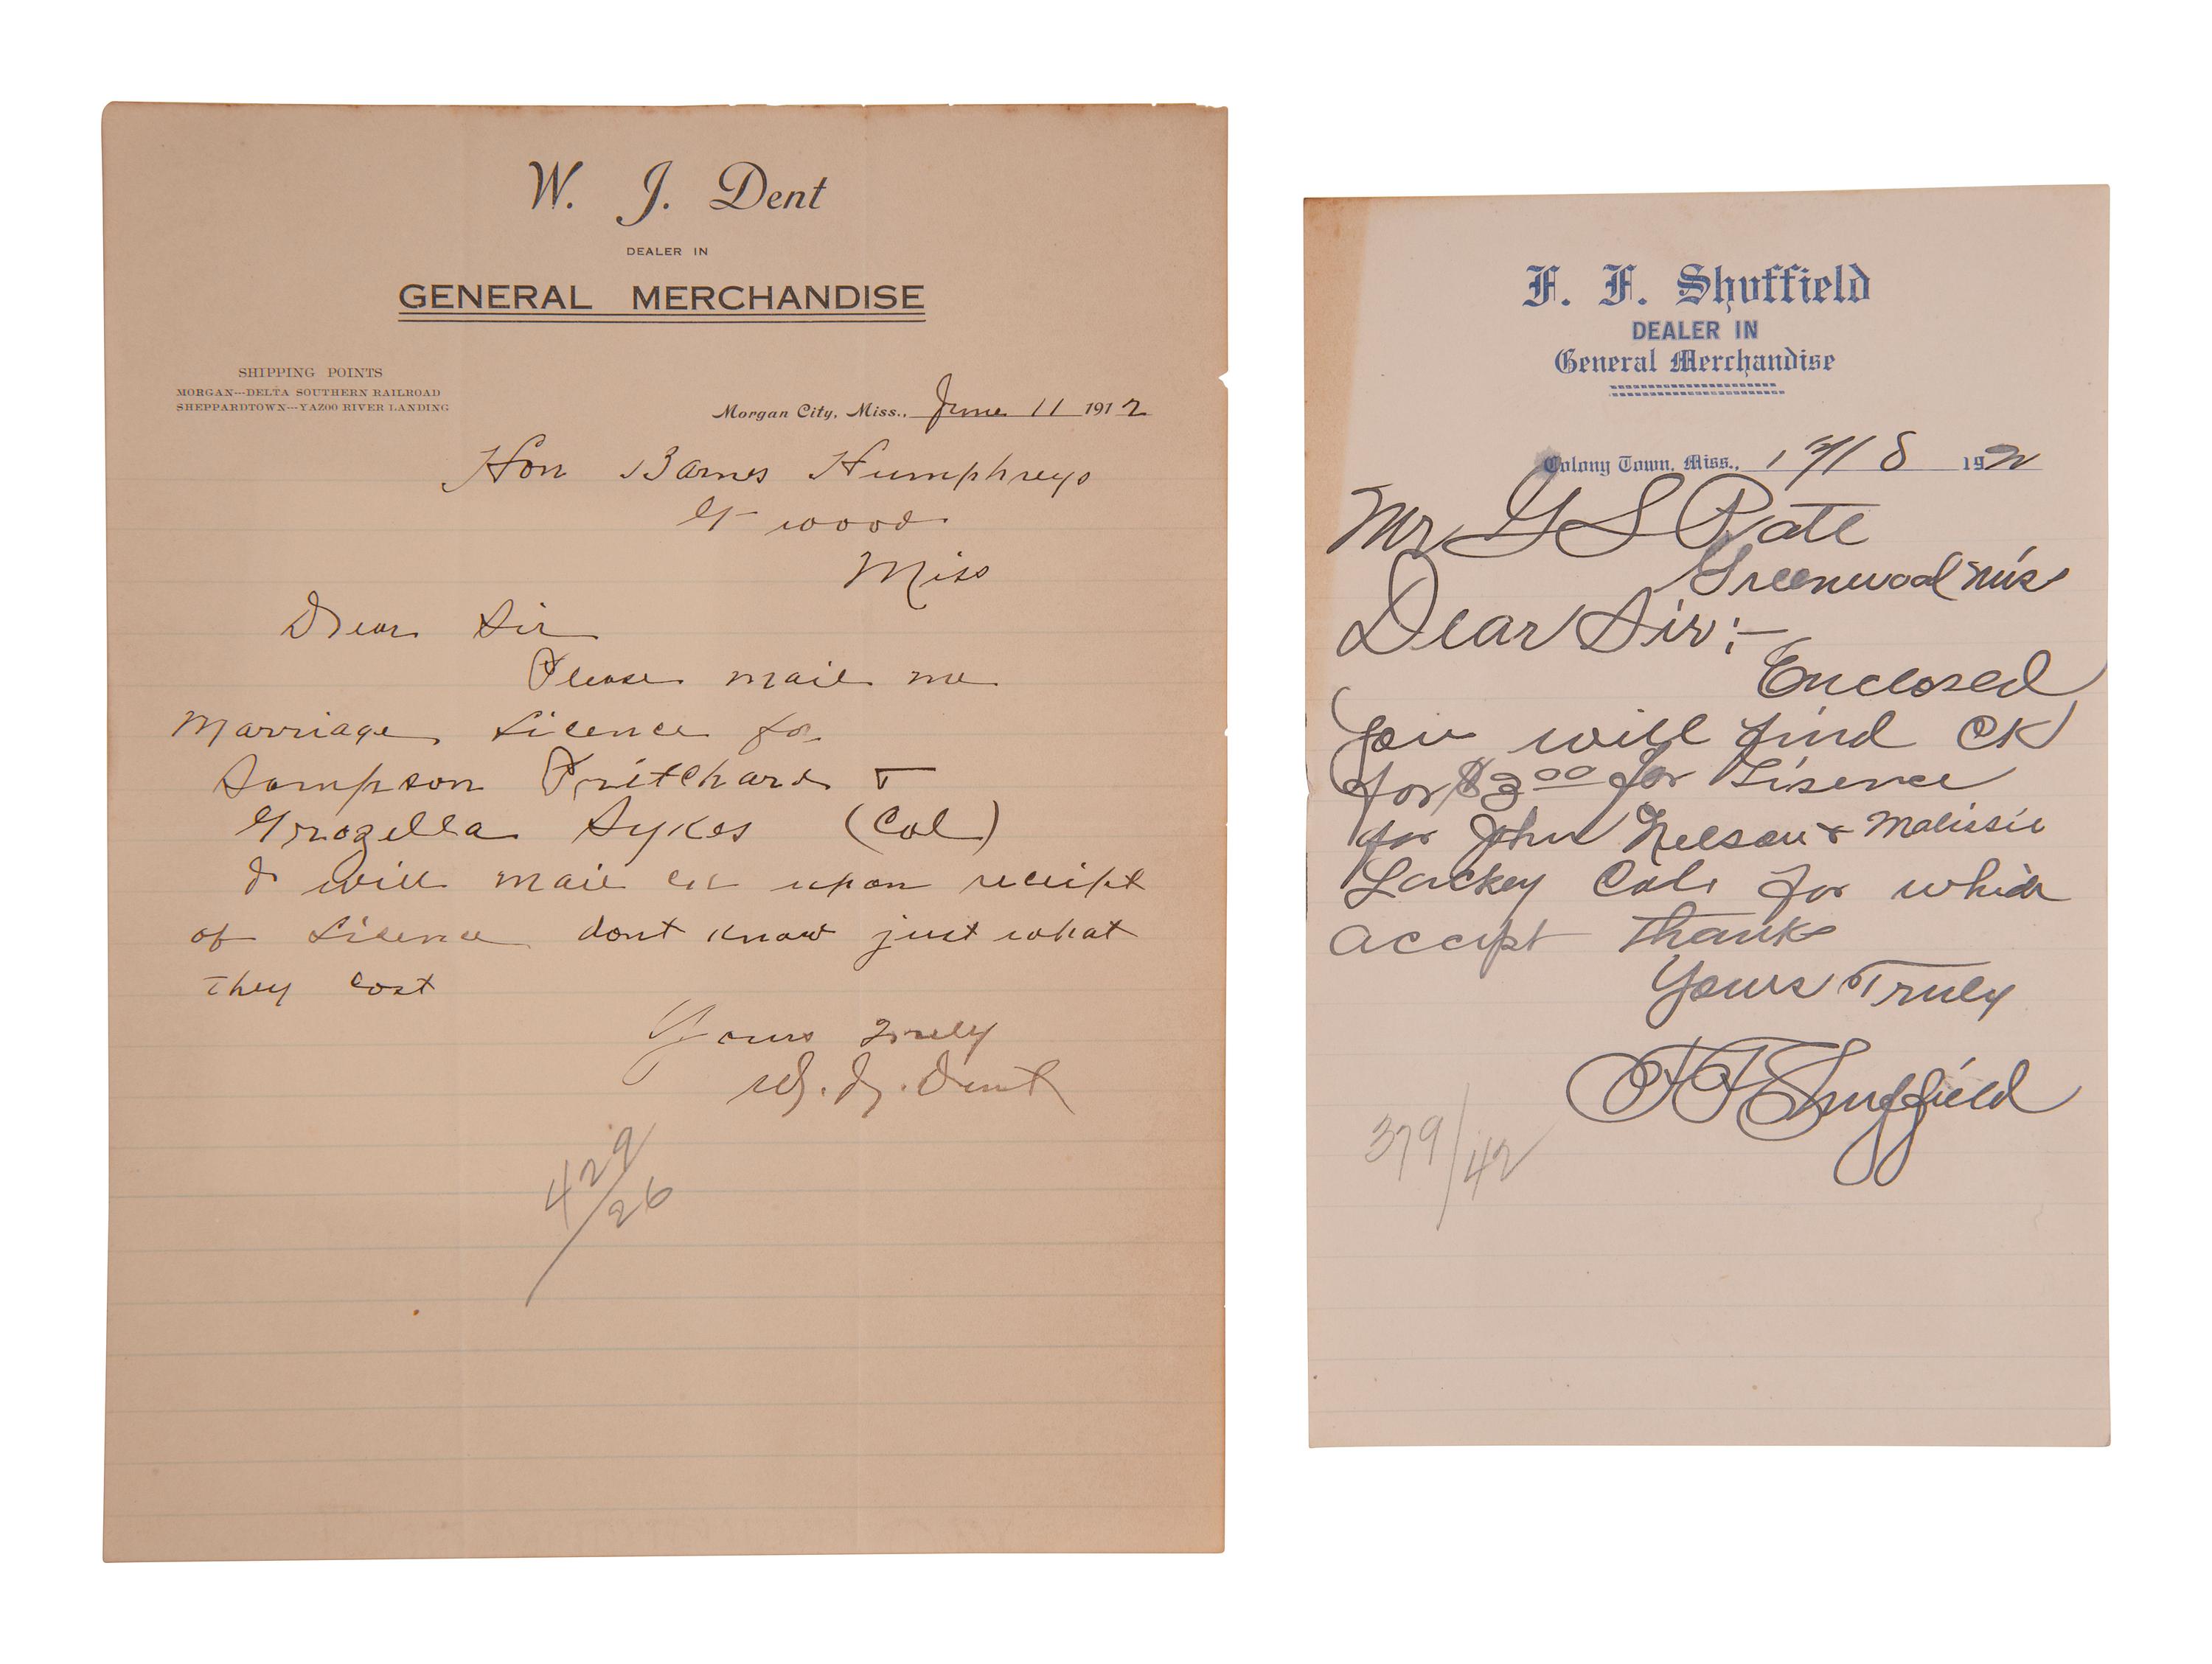 W. J. Dent
DEALER IN
GENERAL MERCHANDISE
SHIPPING POINTS
MORGAN---DELTA SOUTHERN RAILROAD
SHEPPARDTOWN---YAZOO RIVER LANDING
Morgan City, Miss., June 11 1912
Hon Barnes Humphreys
G wood
Miss
Dear Sir
Please mail me
Marriage Licence for
Sampson Pritchard &
Grozella Sykes (Col)
I will mail ck upon receipt
of Licence dont know just what
They cost
Yours Truly
W. J. Dent
429/26
F. F. Shuffield
DEALER IN
General Merchandise
Colony Town, Miss., 18 192
Mr G S Pate
Greenwood Miss
Dear Sir:-
Enclosed
you will find CK
for $3.00 for Lisence
for John Nelson & Malissie
Lackey Col. for which
accept Thanks
Yours Truly
F F Shuffield
379/42